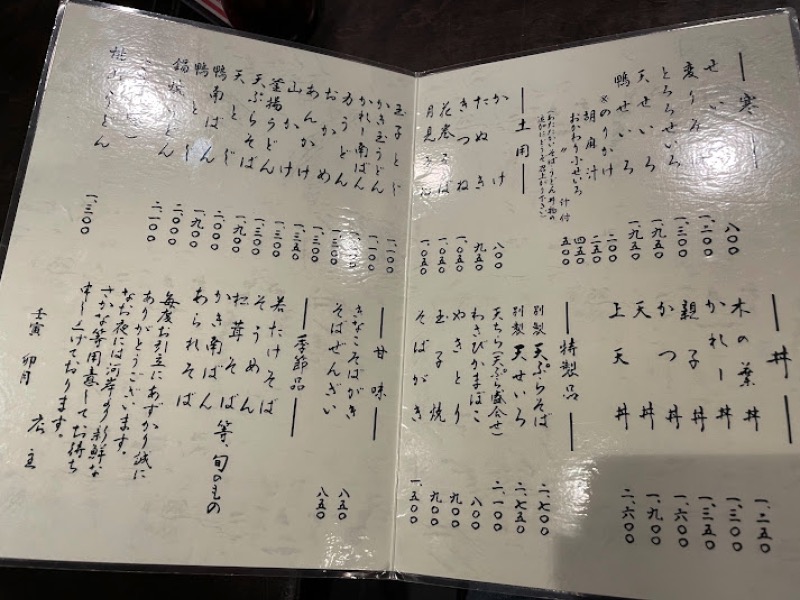 寒
せい
とろろせいろ
天せいろ
鴨せいろ
※のりかけ
胡麻汁
おかわり小せいろ
〃 汁付
八〇〇
一、二〇〇
一、三〇〇
一、九五〇
一、九五〇
二〇〇
二五〇
四五〇
五〇〇
(あたたかいそばうどん丼物の
どうぞ召上がり下さい)
土用
かけ
たぬき
きつね
花巻そば
月見うどん
八〇〇
九五〇
一、〇五〇
一、〇五〇
丼
木の葉丼
かれー丼
親子丼
かつ丼
天丼
上天丼
一、二五〇
一、三〇〇
一、三五〇
一、六〇〇
一、九〇〇
二、六〇〇
特製品
別製 天ぷらそば
別製 天せいろ
天ちら(天ぷら盛合せ)
わさびかまぼこ
やきとり
玉子焼
そばがき
二、七〇〇
二、七五〇
二、一〇〇
八〇〇
九〇〇
九〇〇
一、五〇〇
玉子とじ
かき玉うどん
かれー南ばん
力うどん
おかめ
あんかけ
山かけ
釜揚うどん
天ぷらそば
天とじ
鴨南ばん
鴨とじ
鍋焼うどん
桃山うどん
一、一〇〇
一、三〇〇
一、三〇〇
一、三五〇
一、三〇〇
一、九〇〇
二、〇〇〇
一、九〇〇
二、〇〇〇
二、一〇〇
一、三〇〇
甘味
きなこそばがき
そばぜんざい
八五〇
八五〇
季節品
若たけそば
そうめん
松茸そば
かき南ばん
あられそば
等、旬のもの
毎度お引立にあずかり誠に
ありがとうございます。
なお夜には河岸より新鮮な
さかな等用意してお待ち
申し上げております。
壬寅 卯月 広主